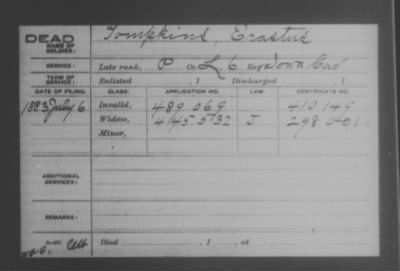 DEAD Tompkins, Erastus
NAME OF SOLDIER:
SERVICE: Late rank, P Co. L, 6 Reg't Iowa Cav
TERM OF SERVICE: Enlisted , 1 Discharged , 1
DATE OF FILING. CLASS. APPLICATION NO. LAW. CERTIFICATE NO.
1883 July 6 Invalid, 489 069 410 149
Widow, J
Minor,
ADDITIONAL SERVICES:
REMARKS:
Died , 1 , at